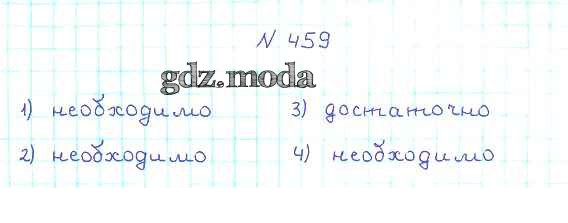 N 459
gdz.moda
1) необходимо 3) достаточно
2) необходимо 4) необходимо